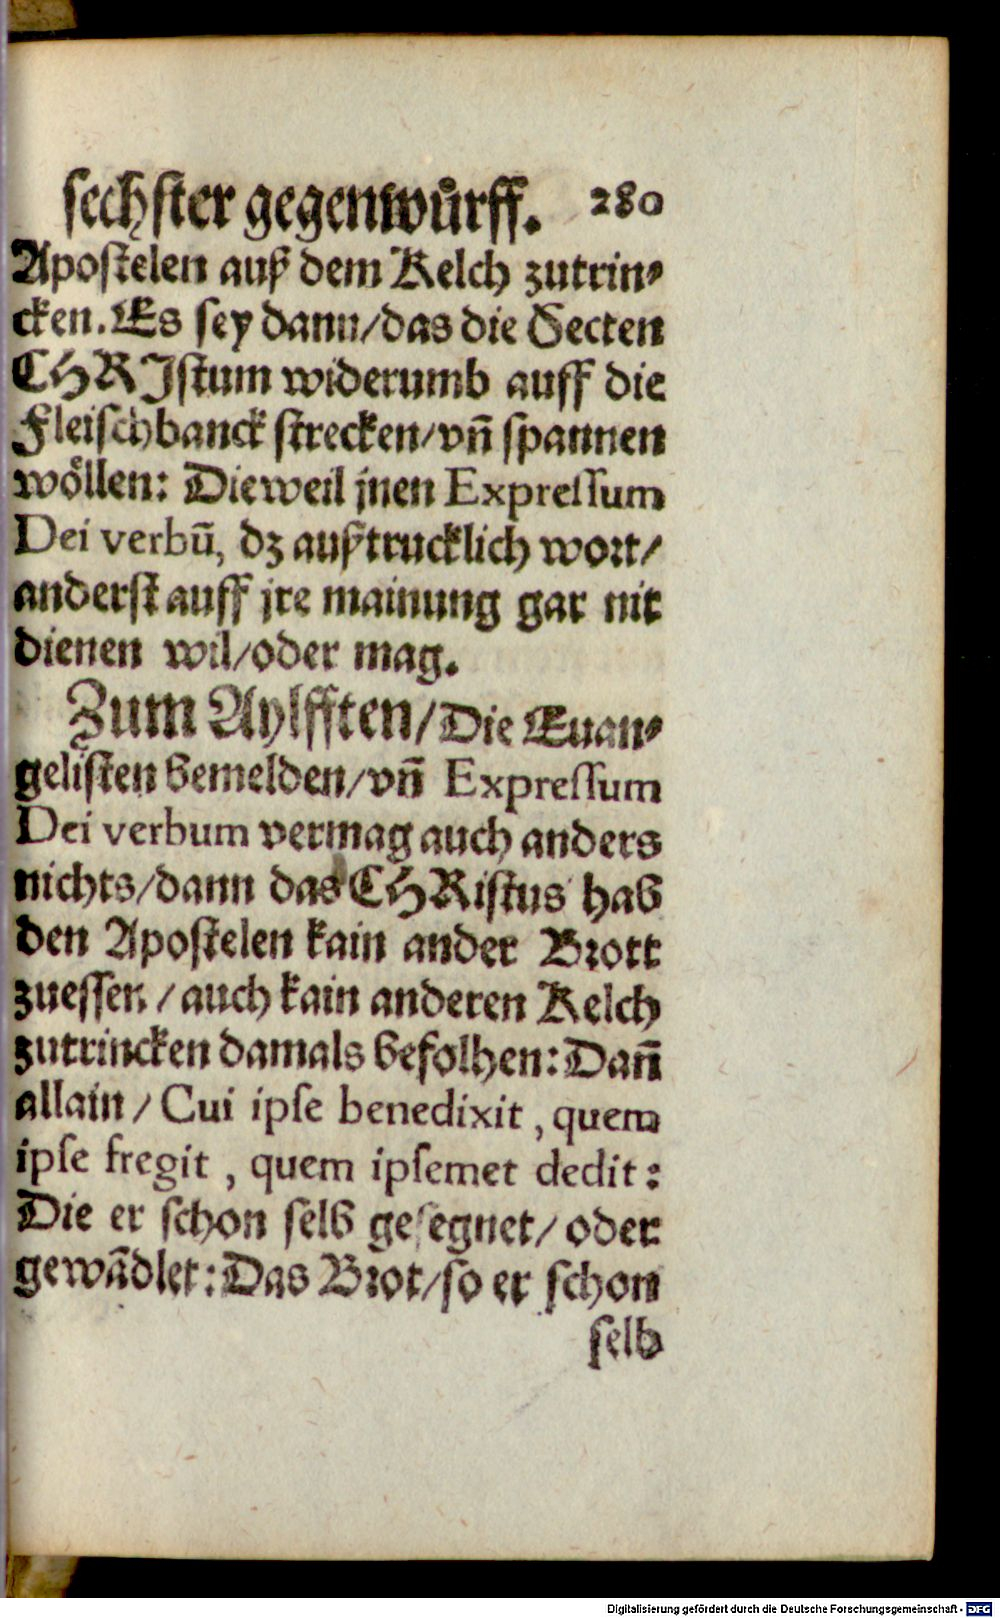 sechster gegenwuͤrff. 280
Apostelen auß dem Kelch zutrin⸗
cken. Es sey dann/das die Secten
CHRIstum widerumb auff die
Fleischbanck strecken/vn̄ spannen
woͤllen: Dieweil jnen Expreſſum
Dei verbū, dz außtrucklich wort/
anderst auff jre mainung gar nit
dienen wil/oder mag.
Zum Aylfften/Die Euan⸗
gelisten bemelden/vn̄ Expreſſum
Dei verbum vermag auch anders
nichts/dann das CHRistus hab
den Apostelen kain ander Brott
zuessen/auch kain anderen Kelch
zutrincken damals befolhen: Dan̄
allain/Cui ipſe benedixit, quem
ipſe fregit, quem ipſemet dedit:
Die er schon selb gesegnet/oder
gewādlet: Das Brot/so er schon
selb
Digitalisierung gefördert durch die Deutsche Forschungsgemeinschaft - DFG